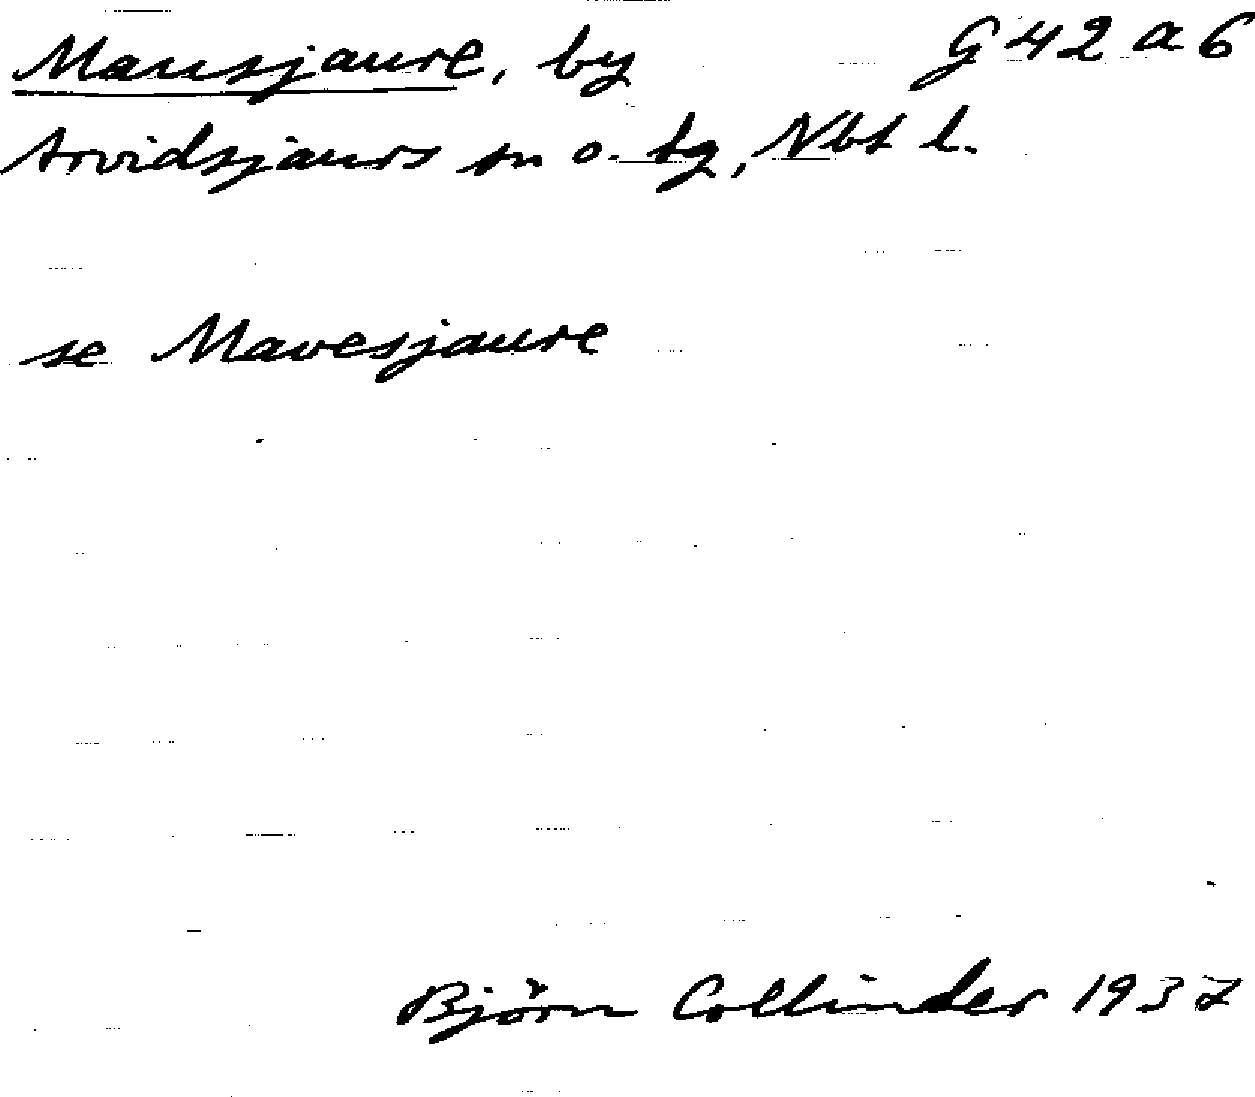 Mausjaure, by G 42 a 6
Arvidsjaurs sn o. tg, Nbt l.
se Mavesjaure
Björn Collinder 1937